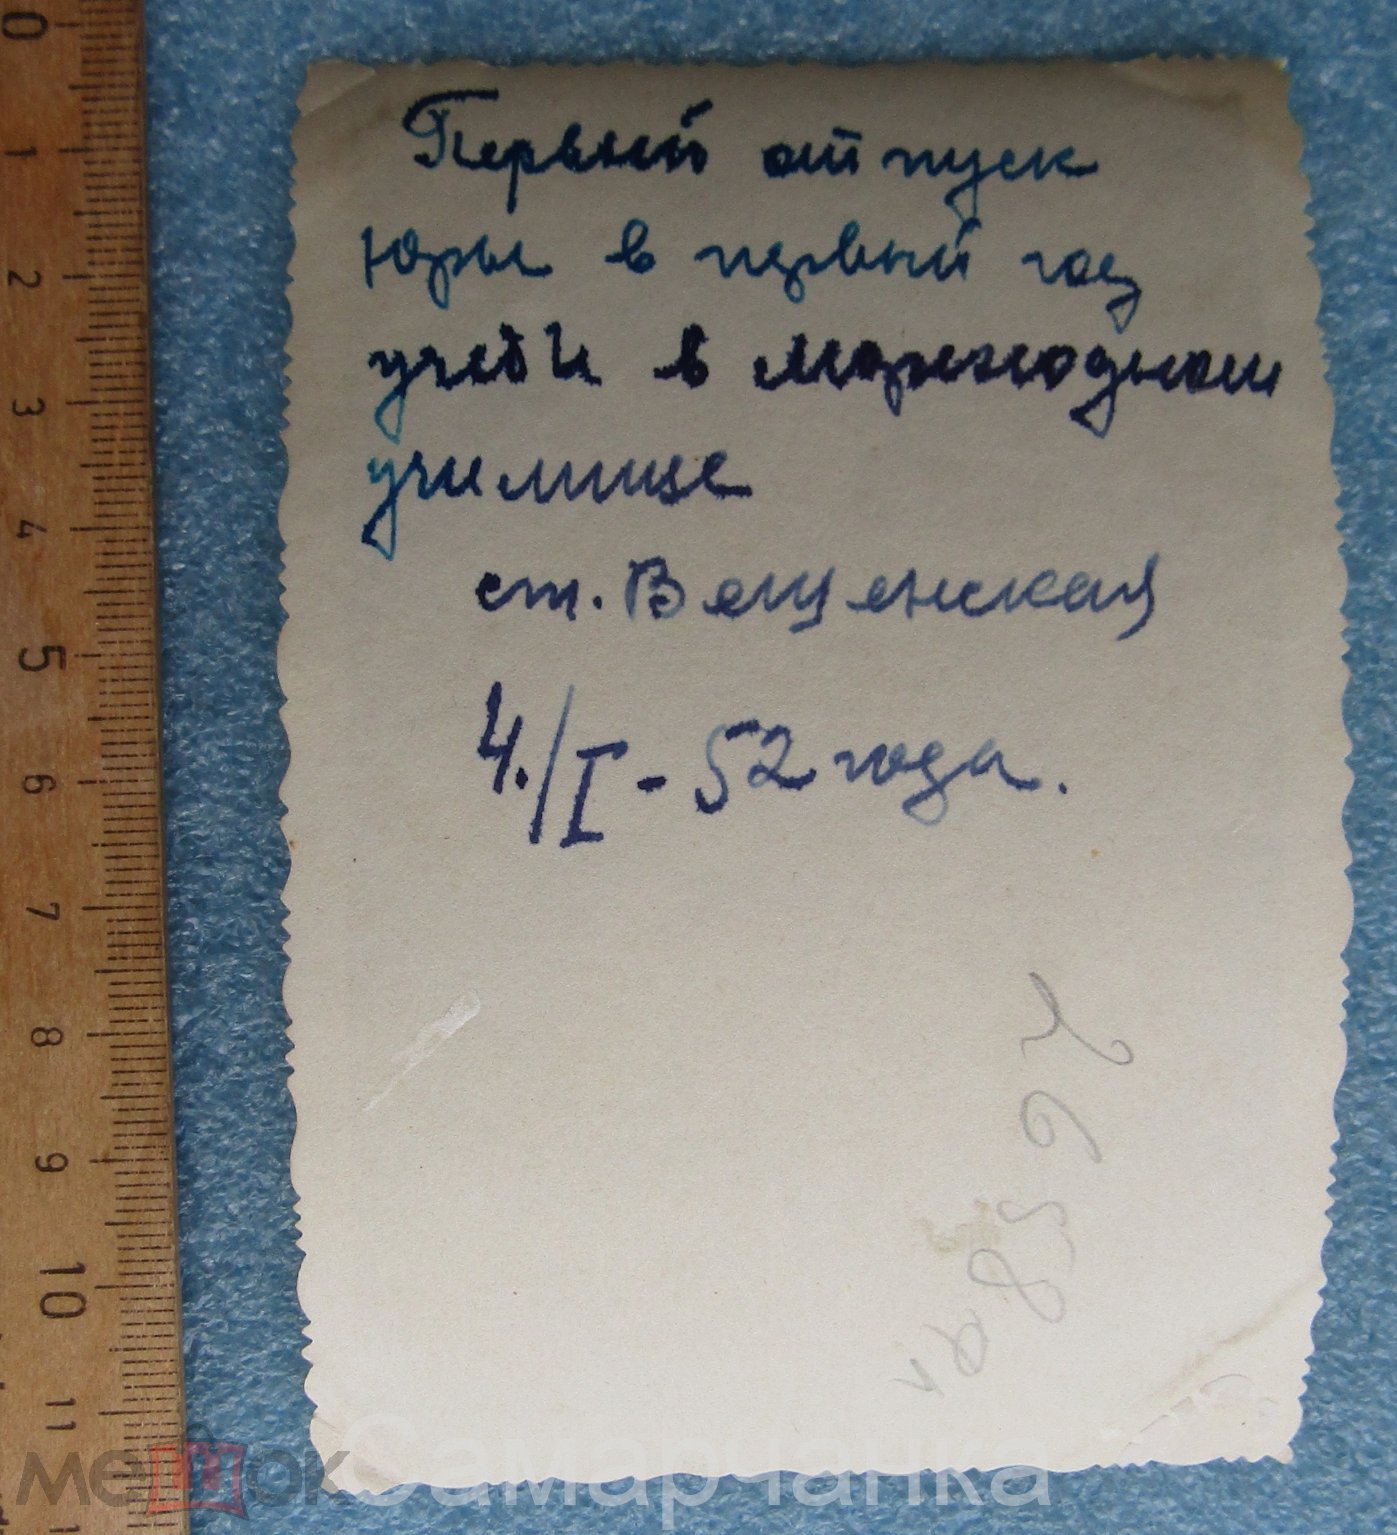 Первый отпуск
Юры в первый год
учебы в мореходном
училище
ст. Вешенская
4./I - 52 года.
0
1
2
3
4
5
6
7
8
9
10
11
мешок
Самарчанка